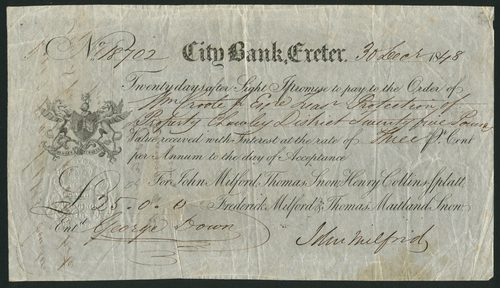 No. 18702 City Bank, Exeter. 30 Decr 1848
Twenty days after Sight I promise to pay to the Order of
Wm Protection of
Property Chawley District Twenty five Pound
Value received with Interest at the rate of Three Pr. Cent
per Annum to the day of Acceptance
For John Milford, Thomas Snow, Henry Collins Splatt,
£25.0.0 Frederick Milford & Thomas Maitland Snow.
Entd. George Down John Milford